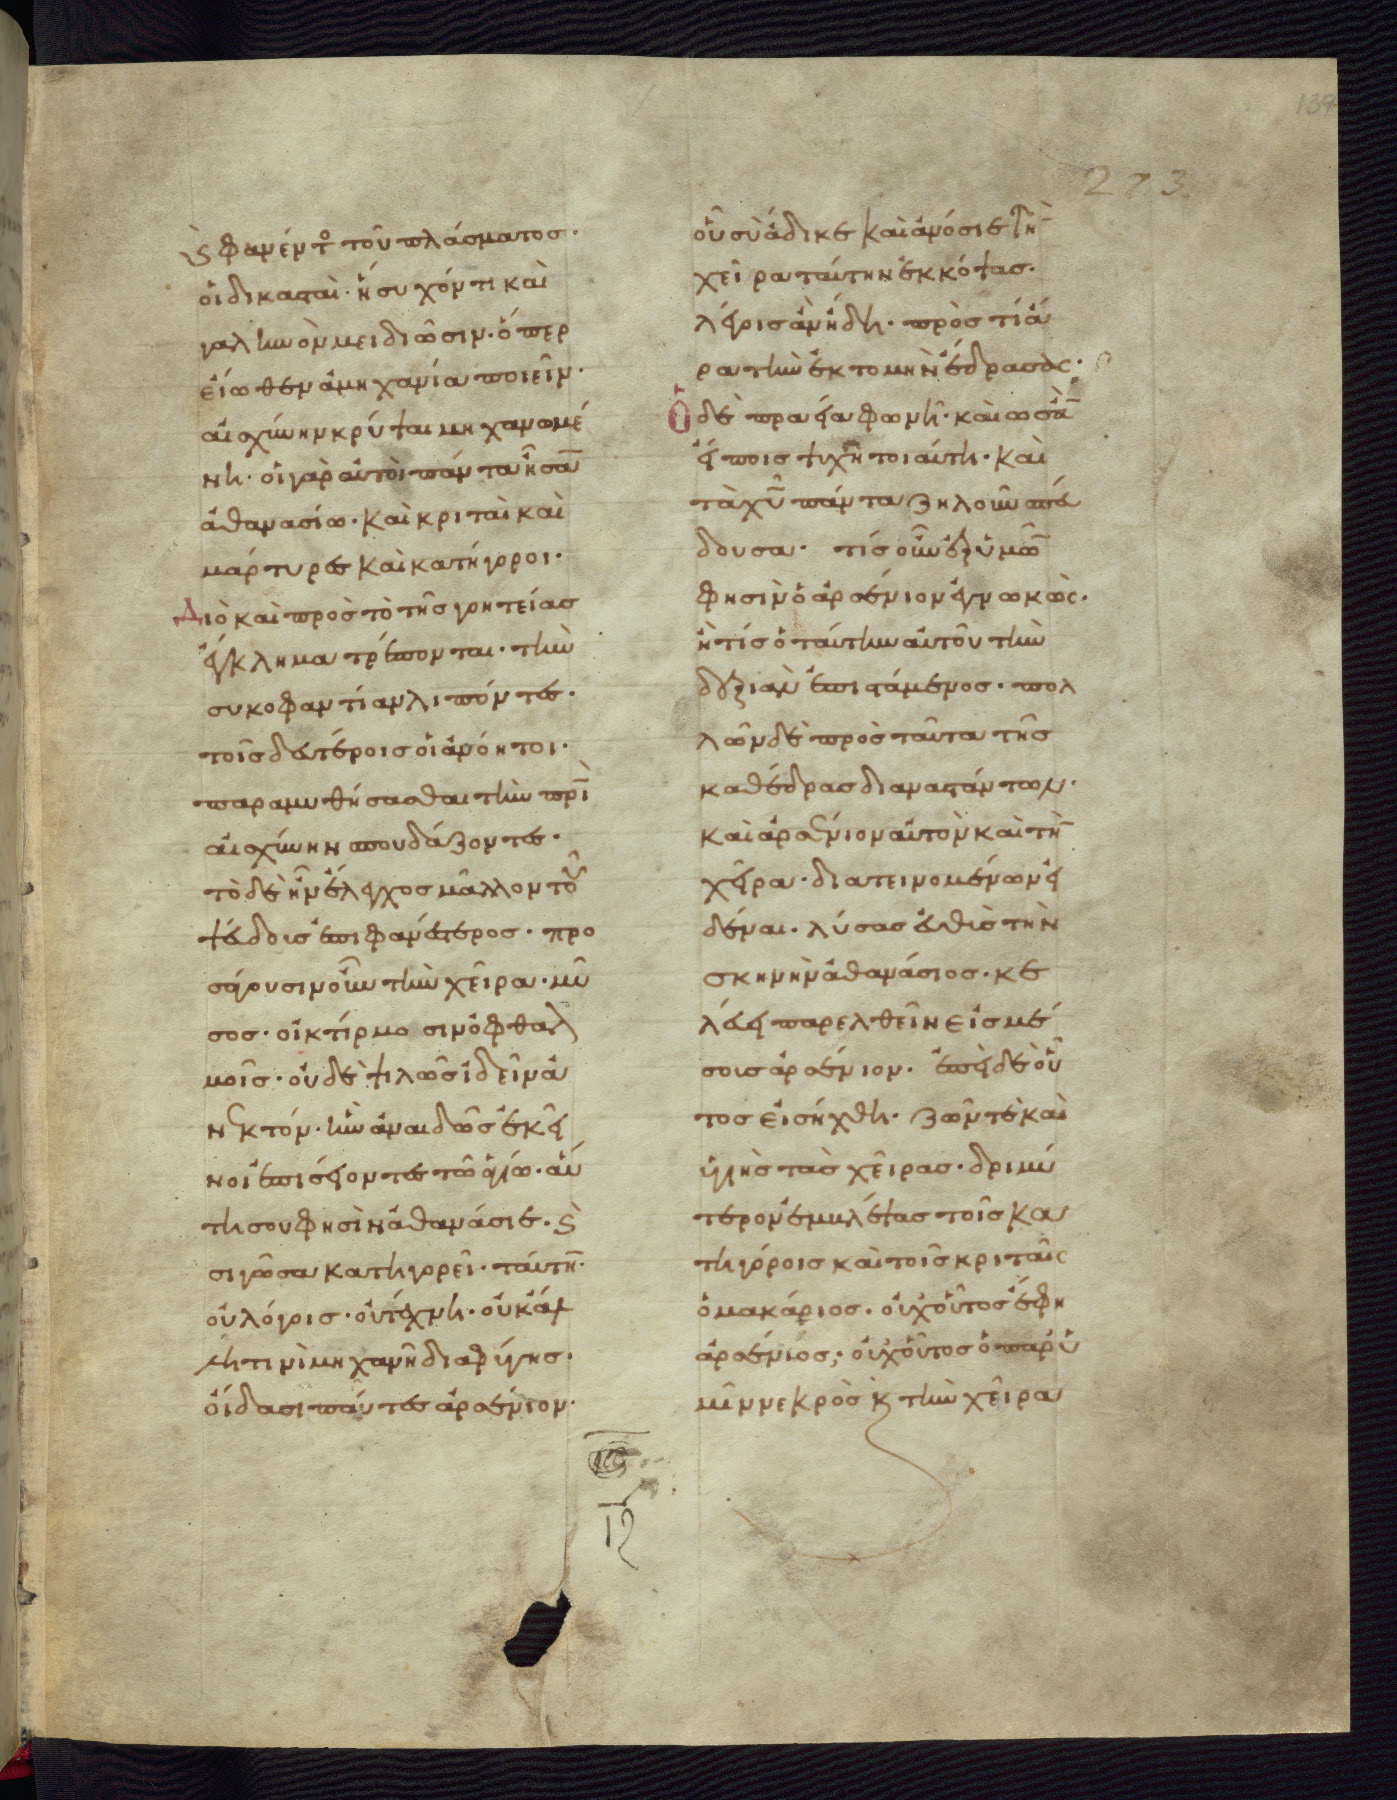 137
273
καὶ φανέντος τοῦ πλάσματος·
οἱ δικασταὶ· ἡσυχόν τι καὶ
γαληνὸν μειδιῶσιν· ὅπερ
εἴωθεν ἀμηχανία ποιεῖν·
αἰσχύνην κρύψαι μηχανωμέ
νη· οἱ γὰρ αὐτοὶ πάντα ἦσαν
ἀθανασίω· καὶ κριταὶ καὶ
μάρτυρες καὶ κατήγοροι·
Διὸ καὶ πρὸς τὸ τῆς γοητείας
ἔγκλημα τρέπονται· τὴν
συκοφαντίαν λιπόντες·
τοῖς δευτέροις οἱ ἀνόητοι·
παραμυθήσασθαι τὴν πρὶν
αἰσχύνην σπουδάζοντες·
τὸ δὲ ἦν ἔλεγχος μᾶλλον τοῦ
ψεύδους ἐπιφανέστερος· προ
σάγουσιν οὖν τὴν χεῖρα· μῦ
σος· οἰκτίρμοσιν ὀφθαλ
μοῖς· οὐδὲ ψιλῶς ἰδεῖν ἀ
νεκτόν· ἣν ἀναιδῶς ἐκεῖ
νοι ἐπισείοντες τῶ ἁγίω· αὕ
τη σου φησὶν ἀθανάσιε· καὶ
σιγῶσα κατηγορεῖ· ταύτην·
οὐ λόγοις· οὐ τέχνη· οὐκ ἄλ
λη τινὶ μηχανῆ διαφύγης·
οἴδασι πάντες ἀρσένιον·
οὗ σὺ ἄδικε καὶ ἀνόσιε τὴν
χεῖρα ταύτην ἐκκόψας·
λέγοις ἂν ἤδη· πρὸς τί ἄ
ρα τὴν ἐκτομὴν ἔδρασας·
Ὁ δὲ πραεία φωνῆ· καὶ ὡς ἂν
εἴποις ψυχῆ τοιαύτη· καὶ
τὰ χριστοῦ πάντα ζηλοῦν σπεύ
δουσα· τίς οὖν ἐξ ὑμῶν
φησὶν ὁ ἀρσένιον ἐγνωκὼς·
ἢ τίς ὁ ταύτην αὐτοῦ τὴν
δεξιὰν ἐπιστάμενος· πολ
λῶν δὲ πρὸς ταῦτα τῆς
καθέδρας διαναστάντων·
καὶ ἀρσένιον αὐτὸν καὶ τὴν
χεῖρα· διατεινομένων εἰ
δέναι· λύσας εὐθὺς τὴν
σκηνὴν ἀθανάσιος· κε
λεύει παρελθεῖν εἰς μέ
σους ἀρσένιον· ἐπεὶ δὲ οὗ
τος εἰσήχθη· ζῶν τε καὶ
ὑγιὴς τὰς χεῖρας· δριμύ
τερον ἐμβλέψας τοῖς κα
τηγόροις καὶ τοῖς κριταῖς
ὁ μακάριος· οὐχ οὗτος ἔφη
ἀρσένιος; οὐχ οὗτος ὁ παρ' ὑ
μῖν νεκρὸς καὶ τὴν χεῖρα